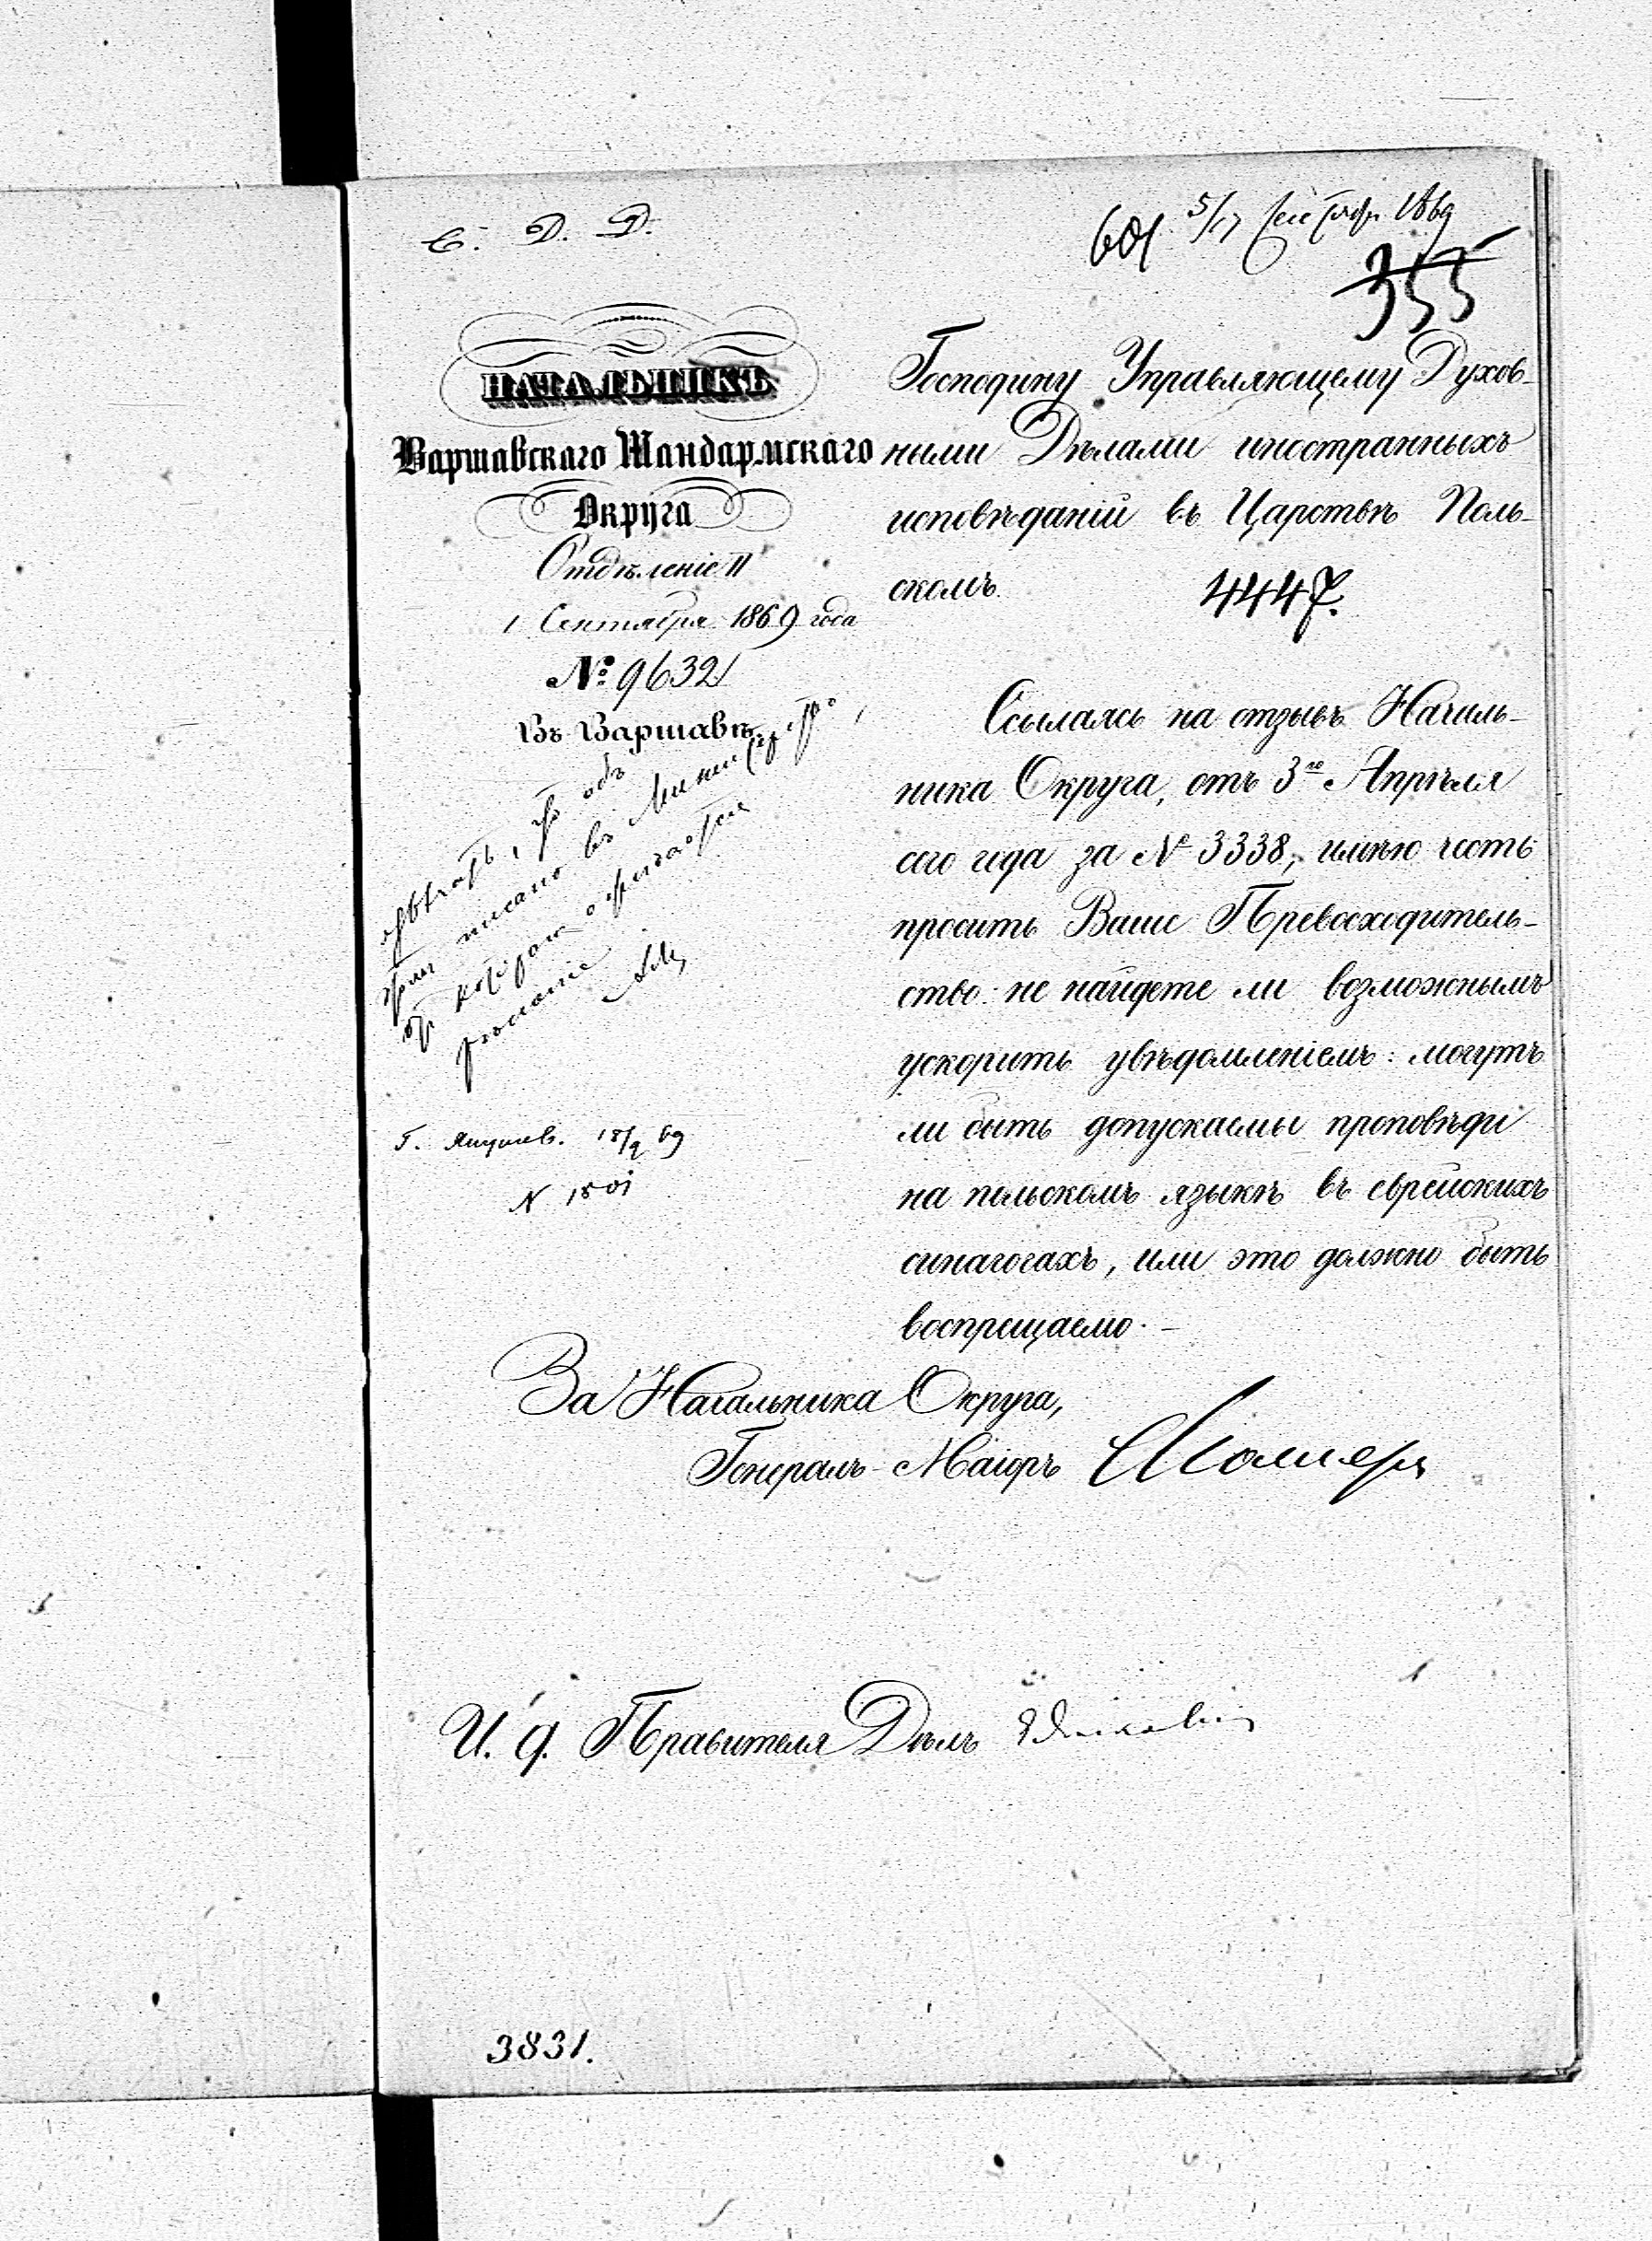 Е. Д. Д.
601 5/17 Сентяб. 1869
355
НАЧАЛЬНИКЪ
Варшавскаго Жандармскаго
Округа
Отдѣленіе II
1 Сентября 1869 года
№ 9632
Въ Варшавѣ.
Господину Управляющему Духов-
ными Дѣлами иностранныхъ
исповѣданій въ Царствѣ Поль-
скомъ.
4447.
Ссылаясь на отзывъ Началь-
ника Округа, отъ 3го Апрѣля
сего года за № 3338, имѣю честь
просить Ваше Превосходитель-
ство: не найдете ли возможнымъ
ускорить увѣдомленіемъ: могутъ
ли быть допускаемы проповѣди
на польскомъ языкѣ въ еврейскихъ
синагогахъ, или это должно быть
воспрещаемо. —
объ
писано въ Министр
ожидается
рѣшеніе
18/9 69
N 1501
За Начальника Округа,
Генералъ-Маіоръ
И. д. Правителя Дѣлъ
3831.